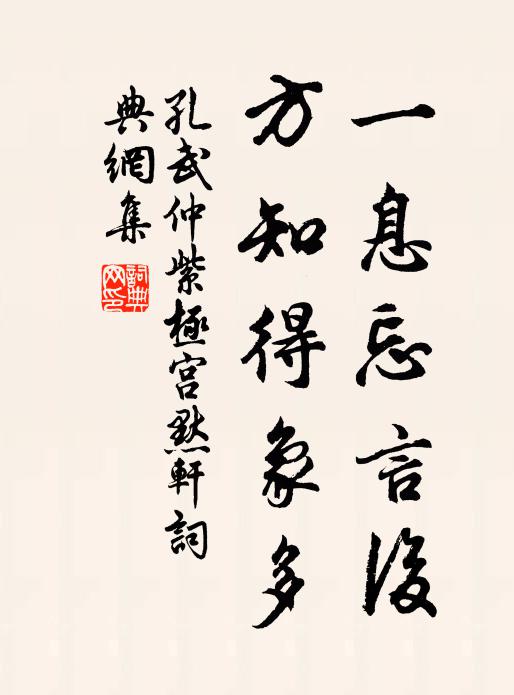 一息忘言後
方知得象多
孔武仲紫極宮默軒詞
典網集
詞典
网印